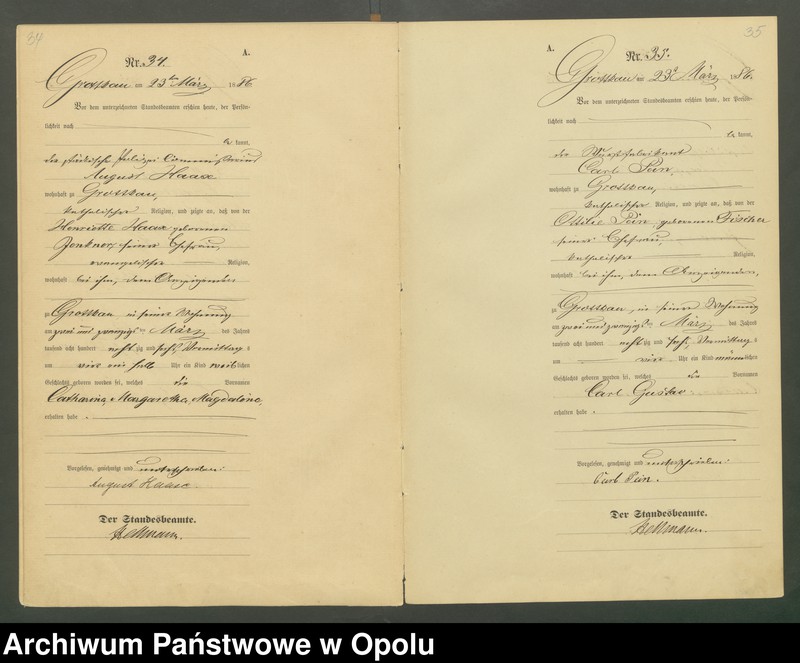 34
A.
Nr. 34.
Grottkau am 23ten März 1886
Vor dem unterzeichneten Standesbeamten erschien heute, der Persön-
lichkeit nach
be kannt,
der städtische Polizei
August Haase
wohnhaft zu Grottkau,
katholischer Religion, und zeigte an, daß von der
Henriette Haase geborenen
seiner Ehefrau,
evangelischer Religion,
wohnhaft bei ihm, dem Anzeigenden
zu Grottkau in seiner Wohnung
am zwei und zwanzigsten März des Jahres
tausend acht hundert achtzig und sechs, Vormittags
um Uhr ein Kind weiblichen
Geschlechts geboren worden sei, welches die Vornamen
Catharina, Margaretha, Magdalena,
erhalten habe.
Vorgelesen, genehmigt und unterschrieben:
August Haase.
Der Standesbeamte.
35
A.
Nr. 35.
Grottkau am 23ten März 1886.
Vor dem unterzeichneten Standesbeamten erschien heute, der Persön-
lichkeit nach
be kannt,
der
Carl
wohnhaft zu Grottkau,
katholischer Religion, und zeigte an, daß von der
Ottilie geborenen Fischer
seiner Ehefrau,
katholischer Religion,
wohnhaft bei ihm, dem Anzeigenden,
zu Grottkau, in seiner Wohnung
am zwei und zwanzigsten März des Jahres
tausend acht hundert achtzig und sechs, Vormittags
um vier Uhr ein Kind männlichen
Geschlechts geboren worden sei, welches die Vornamen
Carl Gustav
erhalten habe.
Vorgelesen, genehmigt und unterschrieben:
Carl
Der Standesbeamte.
Archiwum Państwowe w Opolu